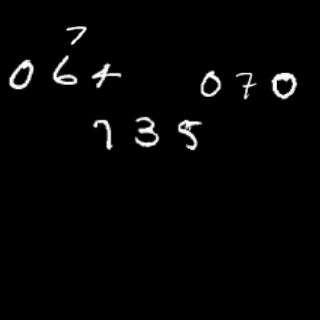 7
064 070
735